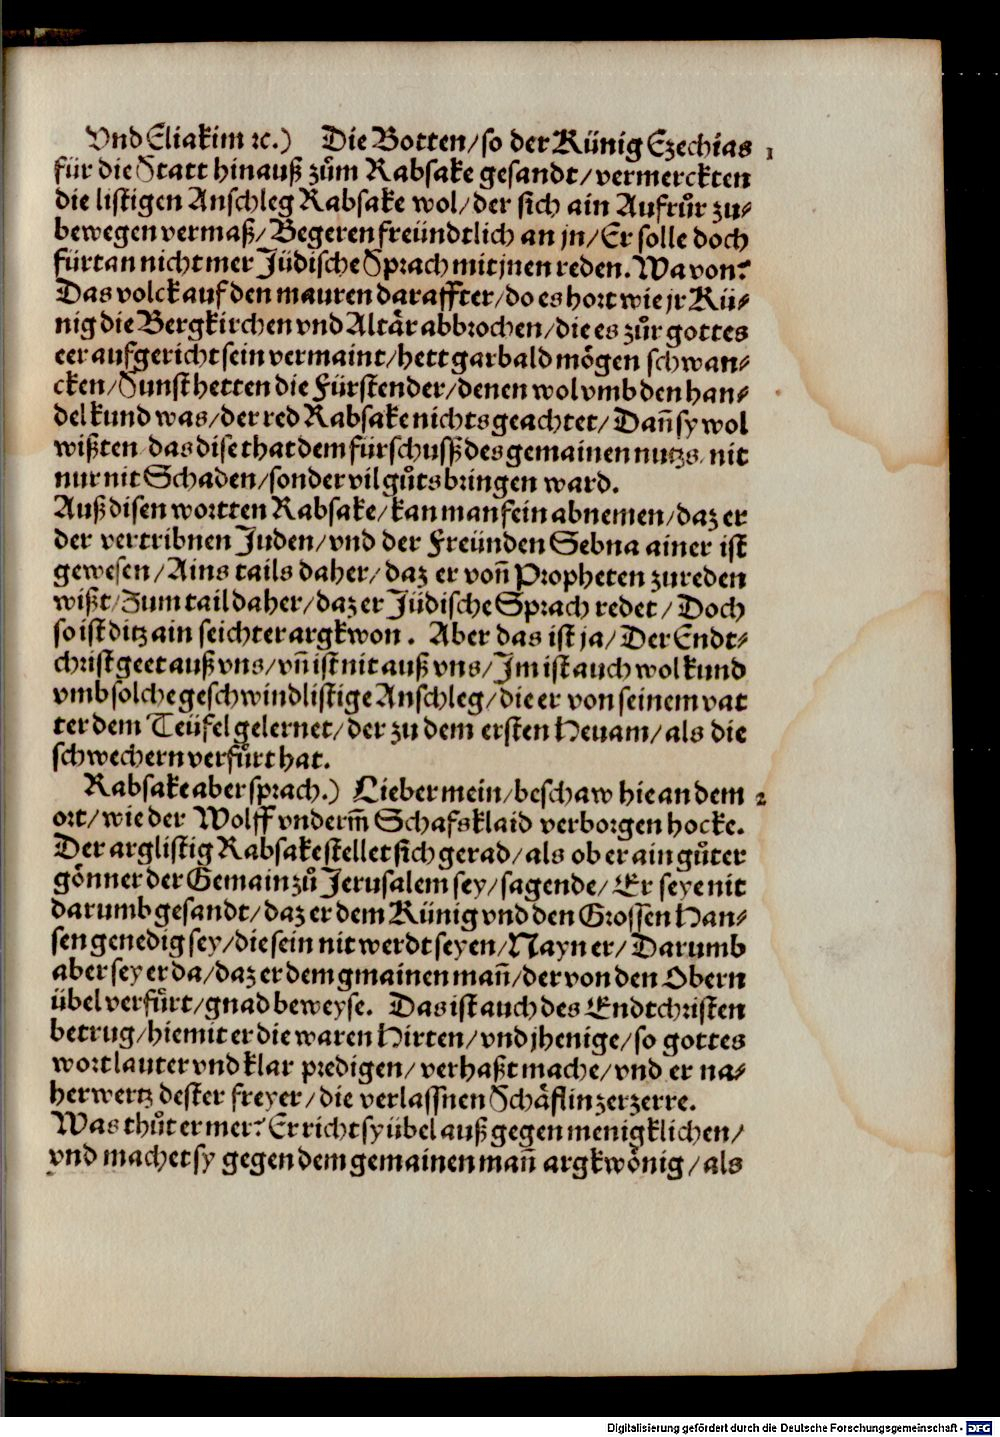 Vnd Eliakim ꝛc.) Die Botten/ so der Künig Ezechias 1
für die Statt hinauß zům Rabsake gesandt/ vermerckten
die listigen Anschleg Rabsake wol/ der sich ain Aufrůr zu⸗
bewegen vermaß/ Begeren freündtlich an jn/ Er solle doch
fürtan nicht mer Jüdische Sprach mit jnen reden. Wa von?
Das volck auf den mauren daraffter/ do es hort wie jr Kü⸗
nig die Bergkirchen vnd Altär abbrochen/ die es zůr gottes
eer aufgericht sein vermaint/ hett gar bald mögen schwan⸗
cken/ Sunst hetten die Fürsten der/ denen wol vmb den han⸗
del kund was/ der red Rabsake nichts geachtet/ Dañ sy wol
wißten das dise that dem fürschuß des gemainen nutzs/ nit
nur nit Schaden/ sonder vil gůts bringen ward.
Auß disen wortten Rabsake/ kan man fein abnemen/ daz er
der vertribnen Juden/ vnd der Freünden Sebna ainer ist
gewesen/ Ains tails daher/ daz er voñ Propheten zureden
wißt/ Zum tail daher/ daz er Jüdische Sprach redet/ Doch
so ist ditz ain seichter argkwon. Aber das ist ja/ Der Endt⸗
christ geet auß vns/ vñ ist nit auß vns/ Im ist auch wol kund
vmb solche geschwind listige Anschleg/ die er von seinem vat
ter dem Teüfel gelernet/ der zu dem ersten Heuam/ als die
schwechern verfůrt hat.
Rabsake aber sprach.) Lieber mein/ beschaw hie an dem 2
ort/ wie der Wolff vnderm̃ Schafsklaid verborgen hocke.
Der arglistig Rabsake stellet sich gerad/ als ob er ain gůter
gönner der Gemain zů Jerusalem sey/ sagende/ Er seye nit
darumb gesandt/ daz er dem Künig vnd den Grossen Han⸗
sen genedig sey/ die sein nit werdt seyen/ Nayn er/ Darumb
aber sey er da/ daz er dem gmainen mañ/ der von den Obern
übel verfůrt/ gnad beweyse. Das ist auch des Endtchristen
betrug/ hiemit er die waren Hirten/ vnd jhenige/ so gottes
wort lauter vnd klar predigen/ verhaßt mache/ vnd er na⸗
herwertz dester freyer/ die verlassnen Schäflin zerzerre.
Was thůt er mer? Er richt sy übel auß gegen menigklichen/
vnd machet sy gegen dem gemainen mañ argkwönig/ als
Digitalisierung gefördert durch die Deutsche Forschungsgemeinschaft - DFG